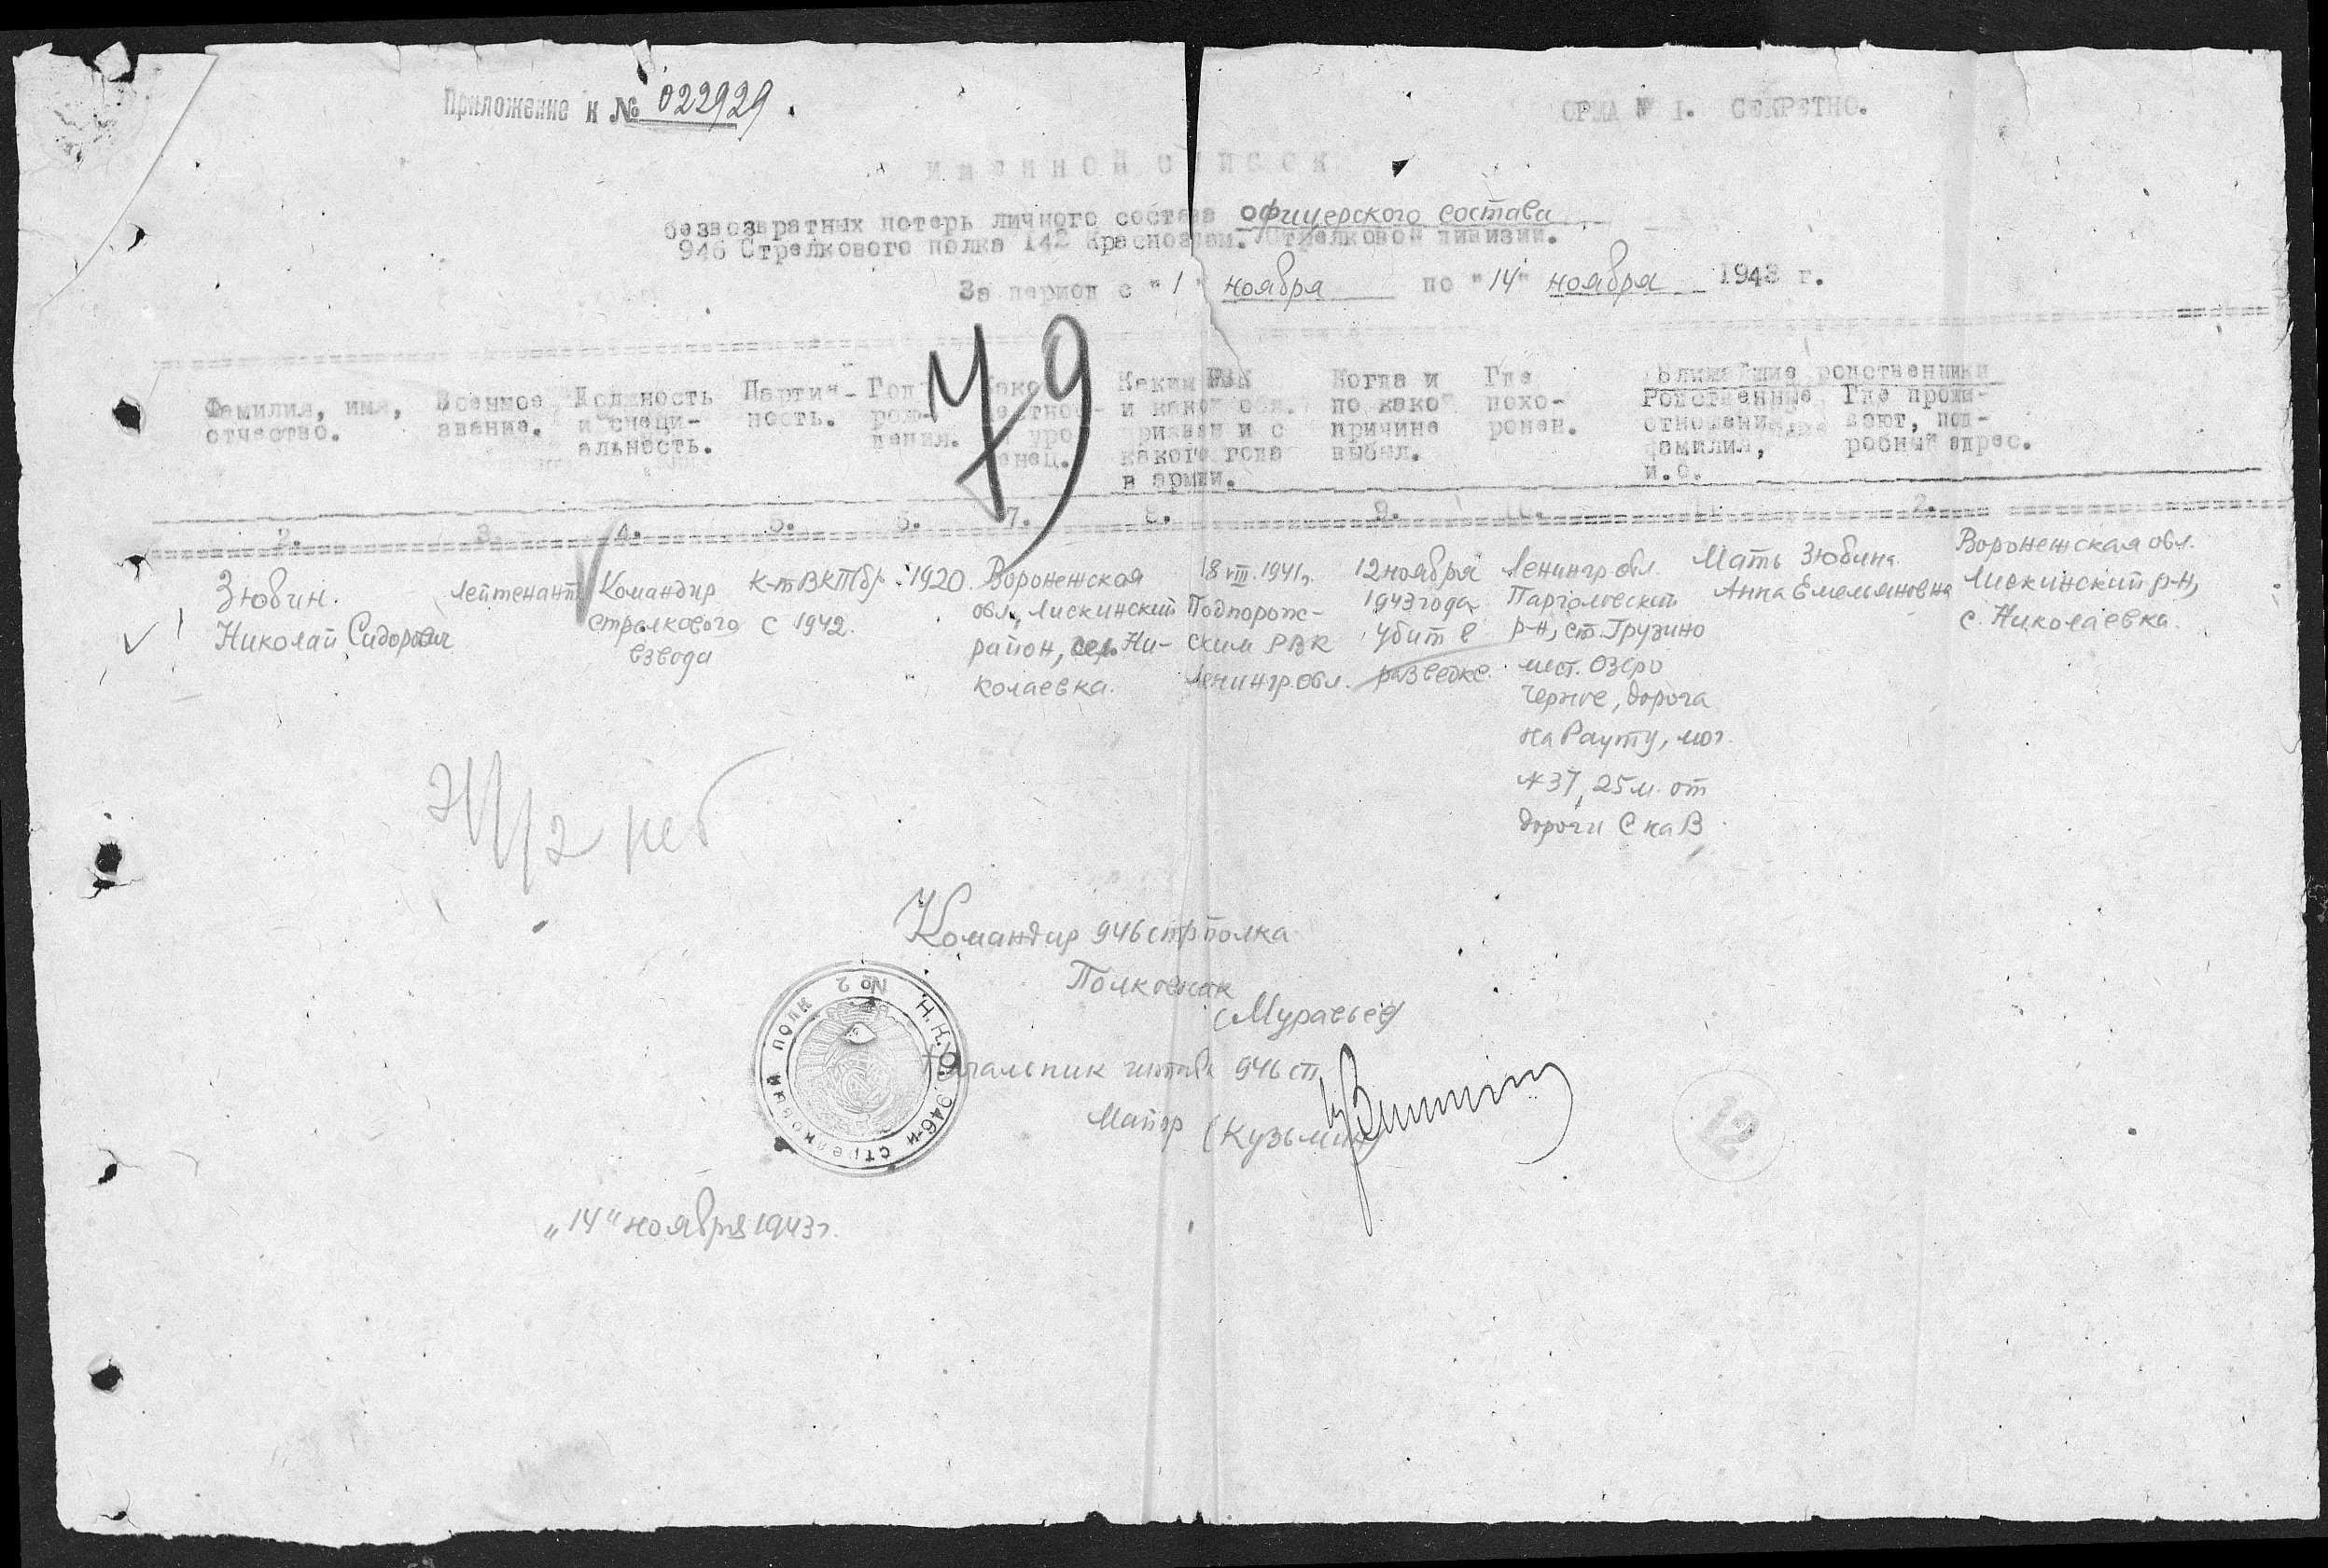 Приложение к № 022929.
ОРМА № 1. СЕКРЕТНО.
ИМЕННОЙ СПИСОК
безвозвратных потерь личного состава офицерского состава
946 Стрелкового полка 142 Краснознам. Стрелковой дивизии.
За период с "1" ноября по "14" ноября 1943 г.
79
Фамилия, имя, отчество.
Военное звание.
Должность и специальность.
Партийность.
Год рождения.
Какой местности уроженец.
Каким РВК и какой обл. призван и с какого года в армии.
Когда и по какой причине выбыл.
Где похоронен.
Ближайшие родственники
Родственные отношения, фамилия, и.о.
Где проживают, подробный адрес.
2. 3. 4. 5. 6. 7. 8. 9. 2.
Зюбин.
Николай Сидорович
Лейтенант
Командир
стрелкового
взвода
К-т ВКП(б)
с 1942.
1920.
Воронежская
обл., Лискинский
район, сел. Ни-
колаевка.
18.VIII.1941г.
Подпорож-
ским РВК
Ленингр. обл.
12 ноября
1943 года
убит в
разведке.
Ленингр обл.
Парголовский
р-н, ст. Грузино
мест. Озеро
Черное, дорога
на Рауту, мог.
№37, 25 м. от
дороги С на В
Мать Зюбина
Анна Емельяновна
Воронежская обл.
Лискинский р-н,
с. Николаевка.
Командир 946 стр полка
Полковник
(Муравьев)
Начальник штаба 946 сп
Майор (Кузьмин)
Н.К.О. 946-й стрелковый полк № 2
12
"14" ноября 1943г.